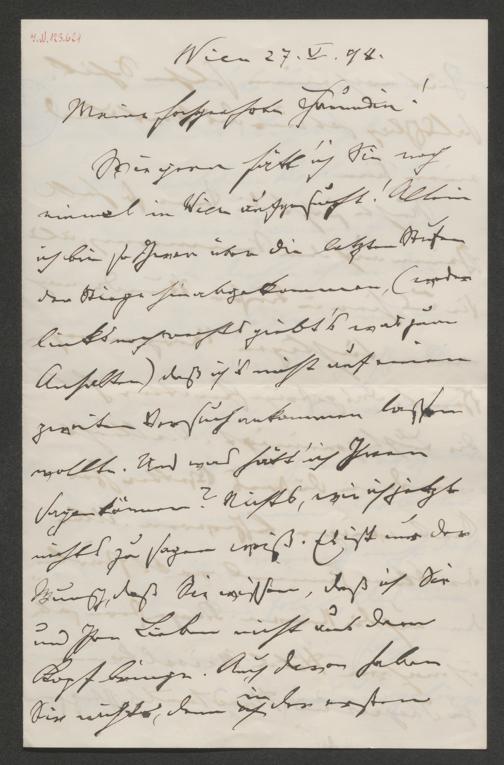 I.N. 123.621
Wien 27. V. 94.
Meine hochgeehrte Freundin!
Wie gerne hätt' ich Sie noch
einmal in Wien aufgesucht! Allein
ich bin so schwer über die letzten Stufen
der Stiege hinabgekommen, (weder
links noch rechts giebt's was zum
Anhalten) daß ich's nicht auf einen
zweiten Versuch ankommen lassen
wollte. Und was hätt' ich Ihnen
sagen können? Nichts, wie ich jetzt
nichts zu sagen weiß. Es ist nur der
Wunsch, daß Sie wissen, daß ich Sie
und Ihre Lieben nicht aus dem
Kopf bringe. Auch davon haben
Sie nichts, denn in der ersten